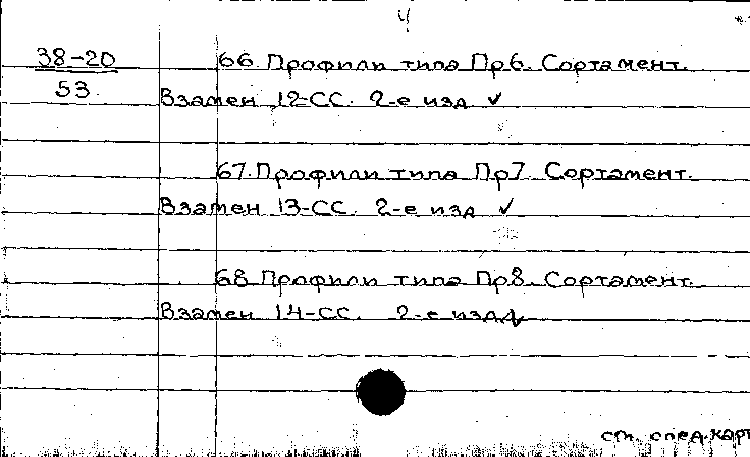 4
38-20
53
66. Профили типа Пр6. Сортамент.
Взамен 12-СС. 2-е изд ✓
67. Профили типа Пр7. Сортамент.
Взамен 13-СС. 2-е изд ✓
68. Профили типа Пр8. Сортамент.
Взамен 14-СС. 2-е изд ✓
см. след. карт